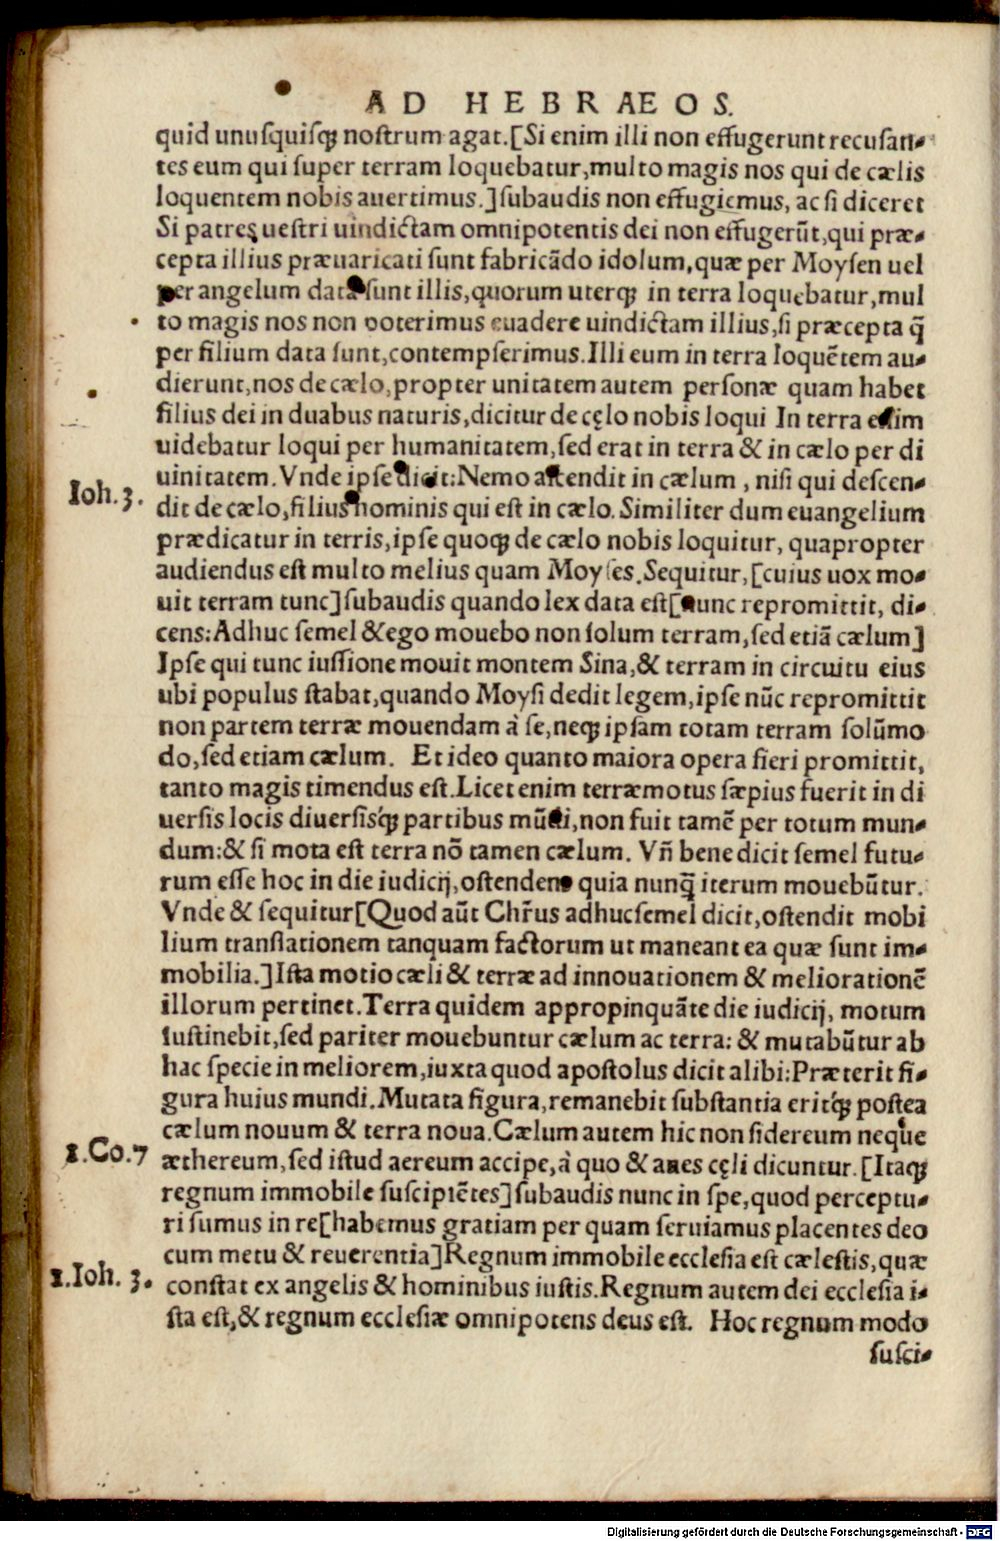 AD HEBRAEOS.
quid unusquisq; nostrum agat.[Si enim illi non effugerunt recusan-
tes eum qui super terram loquebatur,multo magis nos qui de cælis
loquentem nobis auertimus.]subaudis non effugiemus, ac si diceret
Si patres uestri uindictam omnipotentis dei non effugerũt,qui præ-
cepta illius præuaricati sunt fabricãdo idolum,quæ per Moysen uel
per angelum data sunt illis,quorum uterq; in terra loquebatur,mul
to magis nos non poterimus euadere uindictam illius,si præcepta q̃
per filium data sunt,contempserimus.Illi eum in terra loquẽtem au-
dierunt,nos de cælo,propter unitatem autem personæ quam habet
filius dei in duabus naturis,dicitur de cęlo nobis loqui In terra enim
uidebatur loqui per humanitatem,sed erat in terra & in cælo per di
uinitatem.Vnde ipse dicit:Nemo ascendit in cælum , nisi qui descen-
Ioh.3.
dit de cælo,filius hominis qui est in cælo.Similiter dum euangelium
prædicatur in terris,ipse quoq; de cælo nobis loquitur, quapropter
audiendus est multo melius quam Moyses.Sequitur,[cuius uox mo-
uit terram tunc]subaudis quando lex data est[nunc repromittit, di-
cens:Adhuc semel &ego mouebo non solum terram,sed etiã cælum]
Ipse qui tunc iussione mouit montem Sina,& terram in circuitu eius
ubi populus stabat,quando Moysi dedit legem,ipse nũc repromittit
non partem terræ mouendam à se,neq; ipsam totam terram solũmo
do,sed etiam cælum. Et ideo quanto maiora opera fieri promittit,
tanto magis timendus est.Licet enim terræmotus sæpius fuerit in di
uersis locis diuersisq́; partibus mũdi,non fuit tamẽ per totum mun-
dum:& si mota est terra nõ tamen cælum. Vñ bene dicit semel futu-
rum esse hoc in die iudicij,ostendens quia nunq̃ iterum mouebũtur.
Vnde & sequitur[Quod aũt Chr̃us adhuc semel dicit,ostendit mobi
lium translationem tanquam factorum ut maneant ea quæ sunt im-
mobilia.]Ista motio cæli & terræ ad innouationem & melioratione͂
illorum pertinet.Terra quidem appropinquãte die iudicij, motum
sustinebit,sed pariter mouebuntur cælum ac terra: & mutabũtur ab
hac specie in meliorem,iuxta quod apostolus dicit alibi:Præterit fi-
gura huius mundi.Mutata figura,remanebit substantia eritq́; postea
cælum nouum & terra noua.Cælum autem hic non sidereum neque
1.Co.7
æthereum,sed istud aereum accipe,à quo & aues cęli dicuntur.[Itaq;
regnum immobile suscipiẽtes]subaudis nunc in spe,quod perceptu-
ri sumus in re[habemus gratiam per quam seruiamus placentes deo
cum metu & reuerentia]Regnum immobile ecclesia est cælestis,quæ
1.Ioh. 3.
constat ex angelis & hominibus iustis.Regnum autem dei ecclesia i-
sta est,& regnum ecclesiæ omnipotens deus est. Hoc regnum modo
susci-
Digitalisierung gefördert durch die Deutsche Forschungsgemeinschaft - DFG